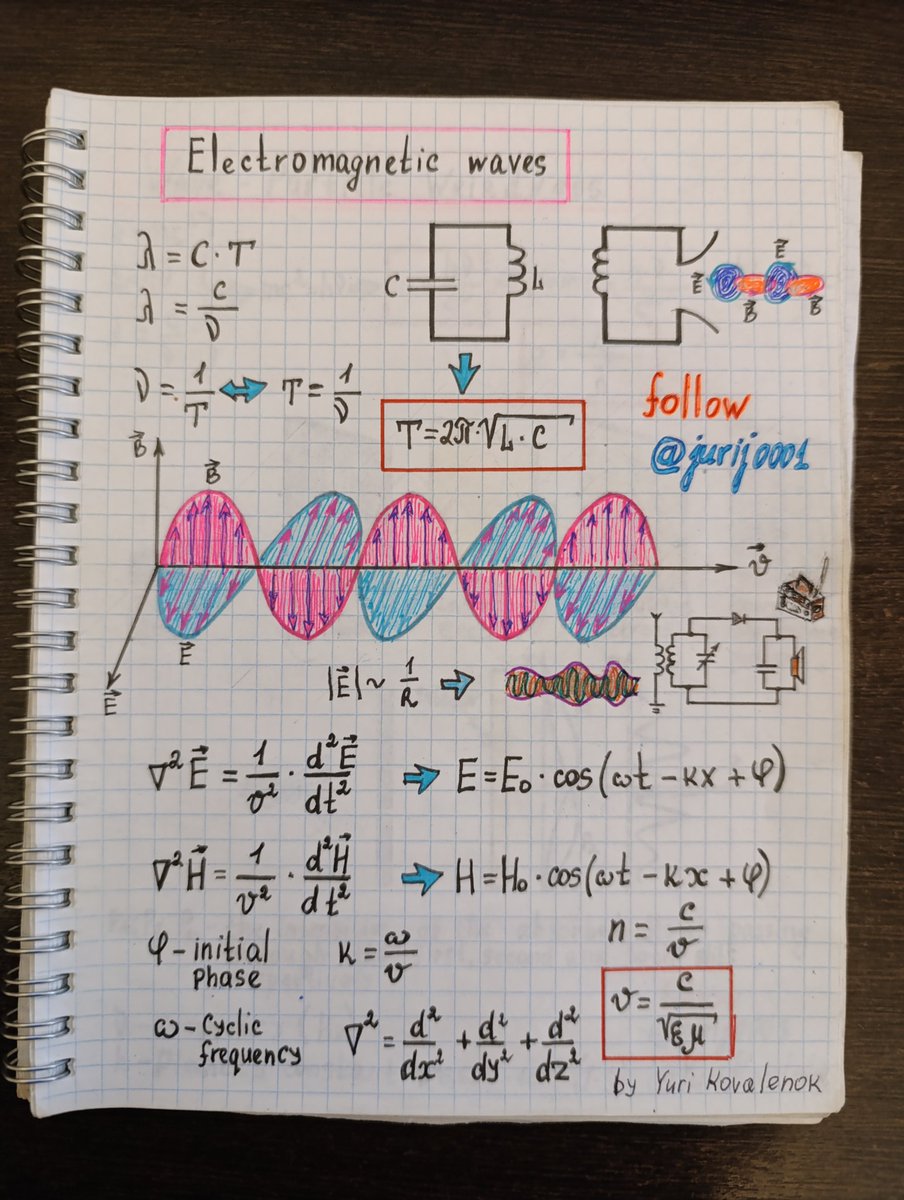 Electromagnetic waves
λ = C · T
λ = C/ν
C
L
E⃗
E⃗
B⃗
B⃗
ν = 1/T ⇔ T = 1/ν
T = 2π·√(L · C)
follow
@jurij0001
B⃗
B⃗
v⃗
E⃗
E⃗
|E⃗| ~ 1/R ⇒
∇²E⃗ = 1/v² · d²E⃗/dt² ⇒ E = E₀ · cos(ωt − kx + φ)
∇²H⃗ = 1/v² · d²H⃗/dt² ⇒ H = H₀ · cos(ωt − kx + φ)
φ - initial
phase
k = ω/v
n = c/v
ω - cyclic
frequency
∇² = d²/dx² + d²/dy² + d²/dz²
v = c/√(εμ)
by Yuri Kovalenok